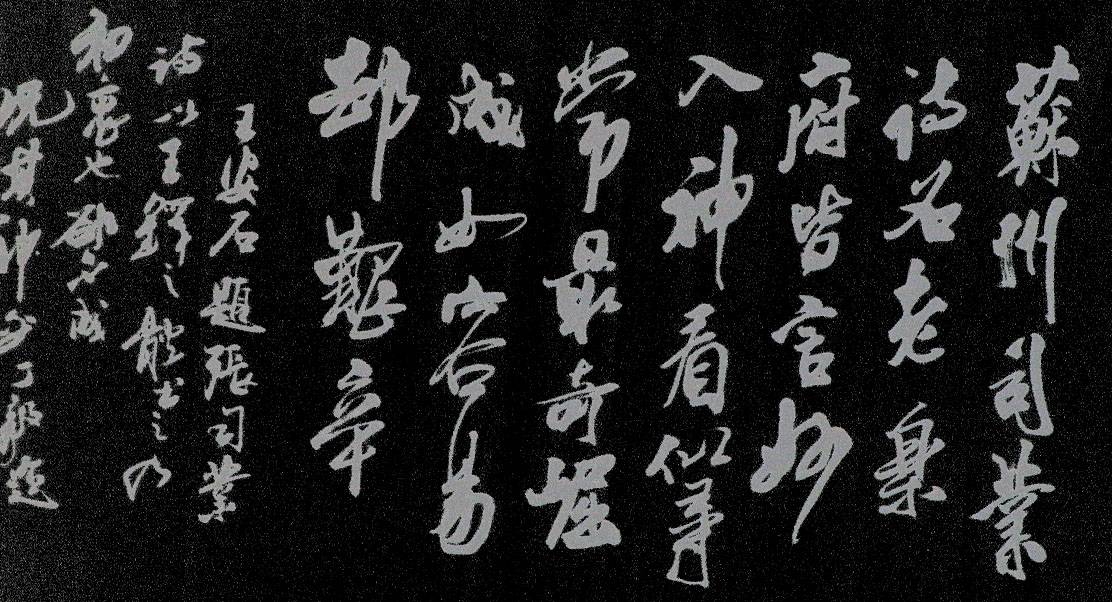 蘇州司業
詩名老樂
府皆言妙
入神看似尋
常最奇崛
成如容易
却艱辛
王安石題張司業
詩以王鐸之體書之乃
初也不成
其神丁